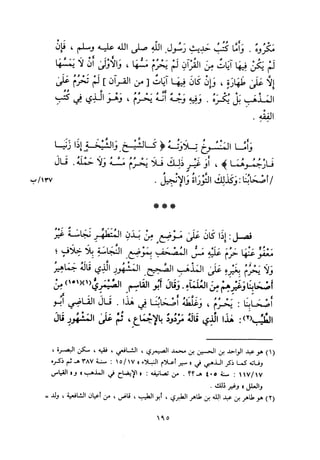 مَكْرُوهٌ . وَأَمَّا كُتُبُ حَدِيثِ رَسُولِ اللَّهِ صلى الله عليه وسلم ، فَإِنْ
لَمْ يَكُنْ فِيهَا آيَاتٌ مِنَ القُرْآنِ لَمْ يَحْرُمْ مَسُّهَا ، وَالأَوْلَى أَنْ لَا يَمَسَّهَا
إِلَّا عَلَى طَهَارَةٍ ، وَإِنْ كَانَ فِيهَا آيَاتٌ [ من القرآن ] لَمْ تَحْرُمْ عَلَى
المَذْهَبِ بَلْ يُكْرَهُ . وَفِيهِ وَجْهٌ أَنَّهُ يَحْرُمُ ، وَهُوَ الَّذِي فِي كُتُبِ
الفِقْهِ .
وَأَمَّا المَنْسُوخُ تِلَاوَتُهُ ﴿ كَالشَّيْخِ وَالشَّيْخَةِ إِذَا زَنَيَا
فَارْجُمُوهُمَا ﴾ ، أَوْ غَيْرِ ذَلِكَ فَلَا يَحْرُمُ مَسُّهُ وَلَا حَمْلُهُ. قَالَ
/ أَصْحَابُنَا: وَكَذَلِكَ التَّوْرَاةُ وَالإِنْجِيلُ . ١٣٧/ب
***
فصل: إِذَا كَانَ عَلَى مَوْضِعٍ مِنْ بَدَنِ المُتَطَهِّرِ نَجَاسَةٌ غَيْرُ
مَعْفُوٍّ عَنْهَا حَرُمَ عَلَيْهِ مَسُّ المُصْحَفِ بِمَوْضِعِ النَّجَاسَةِ بِلَا خِلَافٍ ؛
وَلَا يَحْرُمُ بِغَيْرِهِ عَلَى المَذْهَبِ الصَّحِيحِ المَشْهُورِ الَّذِي قَالَهُ جَمَاهِيرُ
أَصْحَابِنَا وَغَيْرِهِمْ مِنَ العُلَمَاءِ. وَقَالَ أَبُو القَاسِمِ الصَّيْمَرِيُّ (١)(١٥١) مِنْ
أَصْحَابِنَا : يَحْرُمُ ، وَغَلَّطَهُ أَصْحَابُنَا فِي هَذَا . قَالَ القَاضِي أَبُو
الطَّيِّبِ(٢): هَذَا الَّذِي قَالَهُ مَرْدُودٌ بِالإِجْمَاعِ، ثُمَّ عَلَى المَشْهُورِ قَالَ
(١) هو عبد الواحد بن الحسين بن محمد الصيمري ، الشافعي ، فقيه ، سكن البصرة ،
وفاته كما ذكر الذهبي في «سير أعلام النبلاء» ١٥/١٧ : سنة ٣٨٧ هـ ثم ذكره
١١٧/١٧ : سنة ٤٠٥ هـ ؟؟ . من تصانيفه : «الإيضاح في المذهب» و« القياس
والعلل » وغير ذلك .
(٢) هو طاهر بن عبد الله بن طاهر الطبري ، أبو الطيب ، قاض ، من أعيان الشافعية ، ولد =
١٩٥